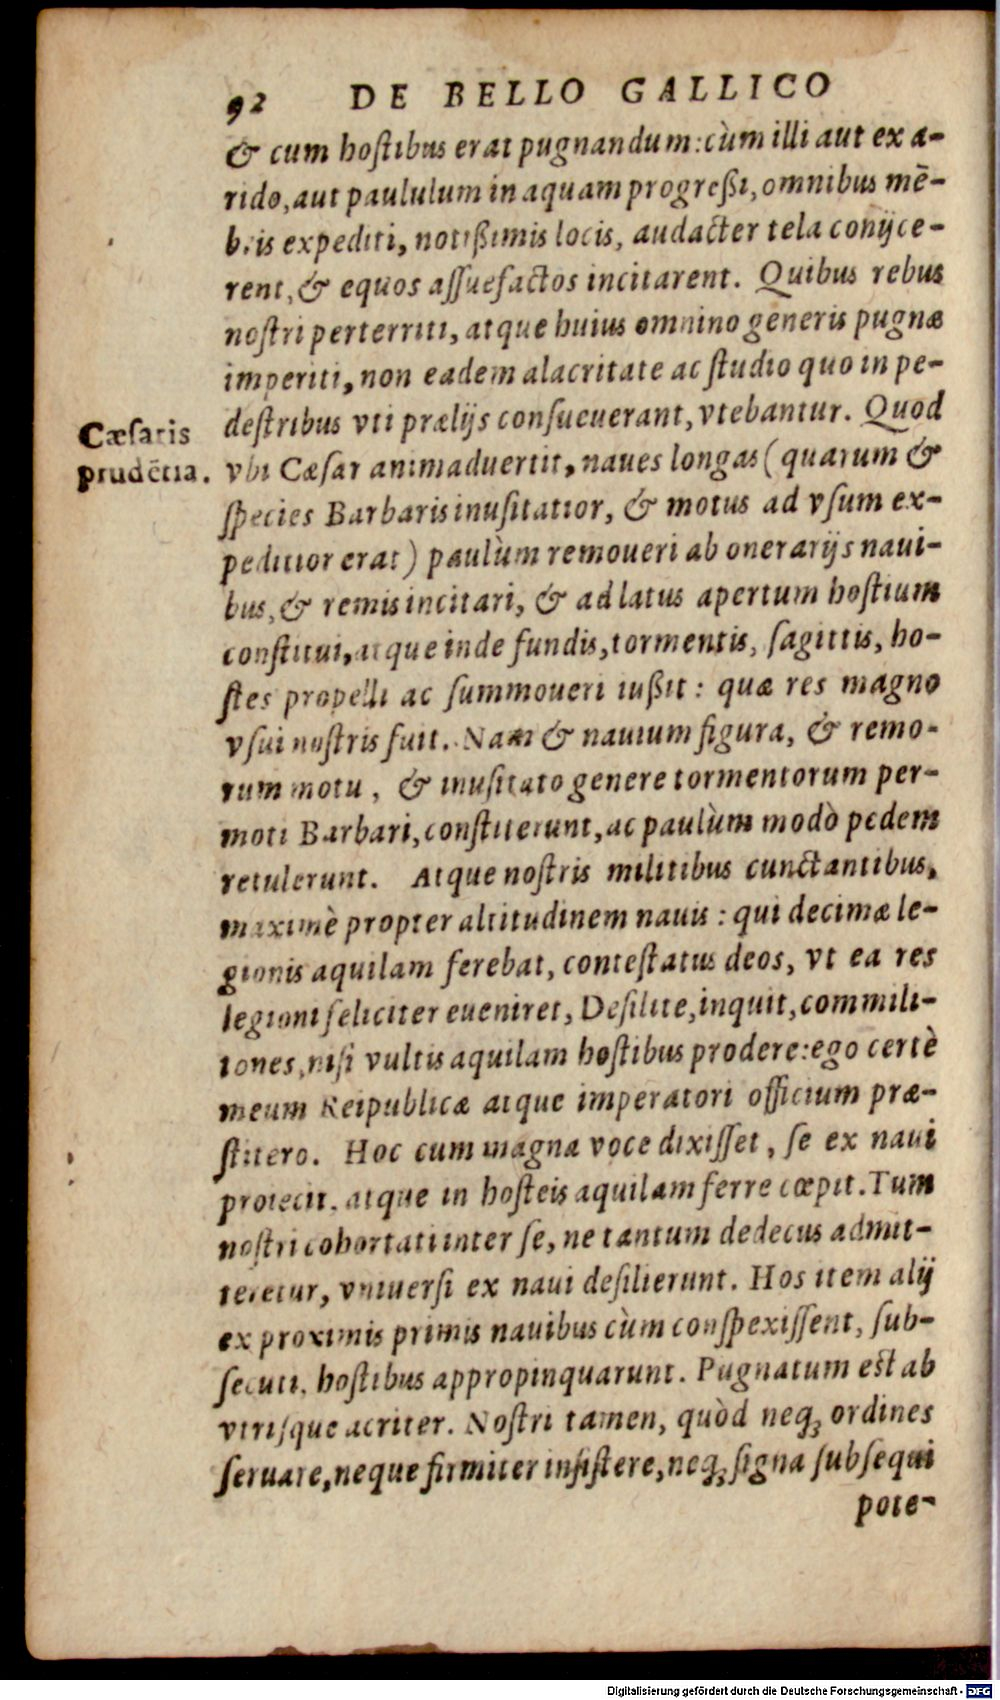 92 DE BELLO GALLICO
& cum hoſtibus erat pugnandum: cùm illi aut ex a-
rido, aut paululum in aquam progreßi, omnibus mē-
bris expediti, notißimis locis, audacter tela conijce-
rent, & equos aſſuefactos incitarent. Quibus rebus
noſtri perterriti, atque huius omnino generis pugnæ
imperiti, non eadem alacritate ac ſtudio quo in pe-
deſtribus vti prælijs conſueuerant, vtebantur. Quod
Cæſaris
prudētia.
vbi Cæſar animaduertit, naues longas (quarum &
ſpecies Barbaris inuſitatior, & motus ad vſum ex-
peditior erat) paulùm remoueri ab onerarijs naui-
bus, & remis incitari, & ad latus apertum hoſtium
conſtitui, atque inde fundis, tormentis, ſagittis, ho-
ſtes propelli ac ſummoueri iußit: quæ res magno
vſui noſtris fuit. Nam & nauium figura, & remo-
rum motu, & inuſitato genere tormentorum per-
moti Barbari, conſtiterunt, ac paulùm modò pedem
retulerunt. Atque noſtris militibus cunctantibus,
maximè propter altitudinem nauis: qui decimæ le-
gionis aquilam ferebat, conteſtatus deos, vt ea res
legioni feliciter eueniret, Deſilite, inquit, commili-
tones, niſi vultis aquilam hoſtibus prodere: ego certè
meum Reipublicæ atque imperatori officium præ-
ſtitero. Hoc cum magna voce dixiſſet, ſe ex naui
proiecit, atque in hoſteis aquilam ferre cœpit. Tum
noſtri cohortati inter ſe, ne tantum dedecus admit-
teretur, vniuerſi ex naui deſilierunt. Hos item alij
ex proximis primis nauibus cùm conſpexiſſent, ſub-
ſecuti, hoſtibus appropinquarunt. Pugnatum est ab
vtriſque acriter. Noſtri tamen, quòd neq; ordines
ſeruare, neque firmiter inſiſtere, neq; ſigna ſubſequi
pote-
Digitalisierung gefördert durch die Deutsche Forschungsgemeinschaft - DFG